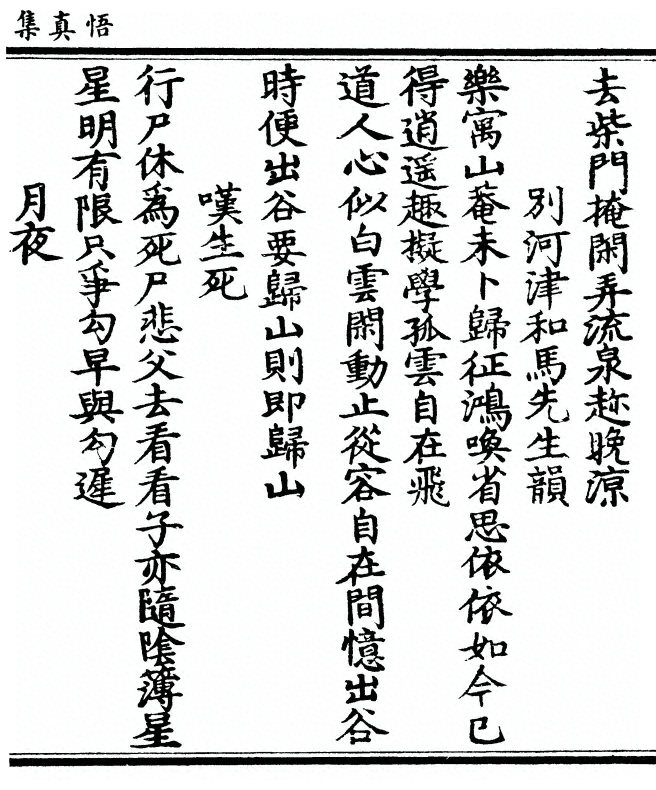 悟真集
去柴門掩閑弄流泉趂晚涼
別河津和馬先生韻
樂寓山菴未卜歸征鴻喚省思依依如今已
得逍遥趣擬學孤雲自在飛
道人心似白雲閑動止從容自在間憶出谷
時便出谷要歸山則即歸山
嘆生死
行尸休爲死尸悲父去看看子亦隨陰薄星
星明有限只爭勾早與勾遲
月夜